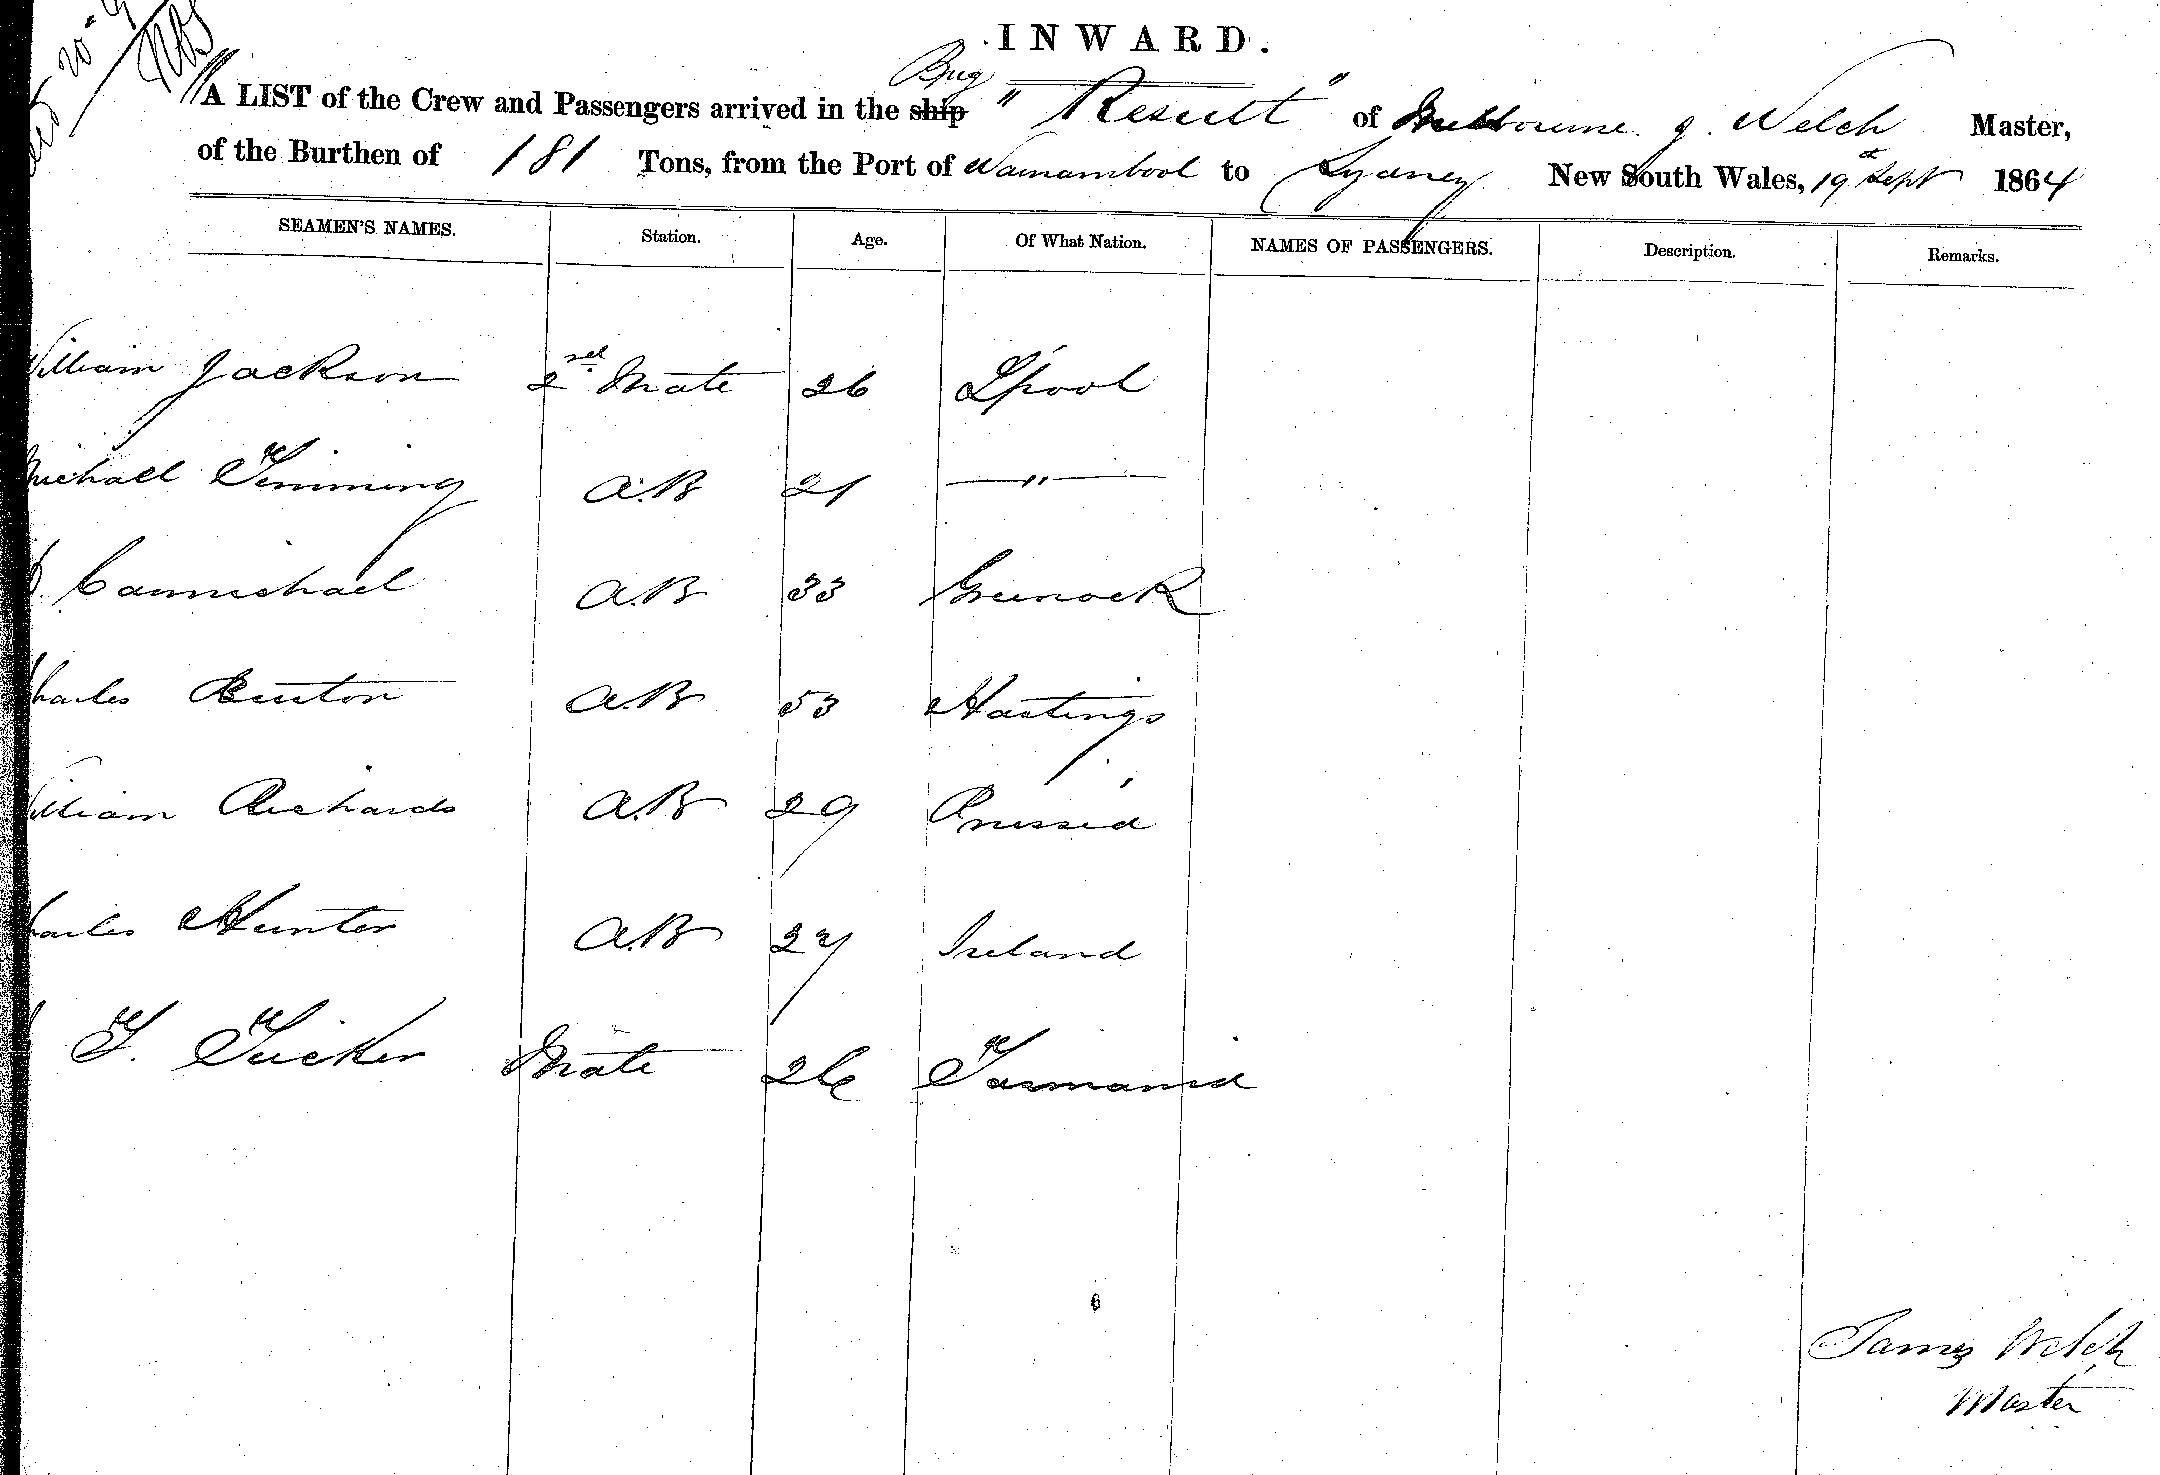 INWARD.
A LIST of the Crew and Passengers arrived in the ship Brig "Result" of Melbourne J. Welch Master,
of the Burthen of 181 Tons, from the Port of Warnambool to Sydney New South Wales, 19th Sept 1864
SEAMEN'S NAMES. Station. Age. Of What Nation. NAMES OF PASSENGERS. Description. Remarks.
William Jackson 2nd Mate 26 L'pool
Michael Timming A.B 21 — " —
Carmichael A.B 33 Greenock
Charles Buxton A.B 53 Hastings
William Richards A.B 29 Prussia
Charles Hunter A.B 27 Ireland
T. Tucker Mate 26 Tasmania
James Welch
Master